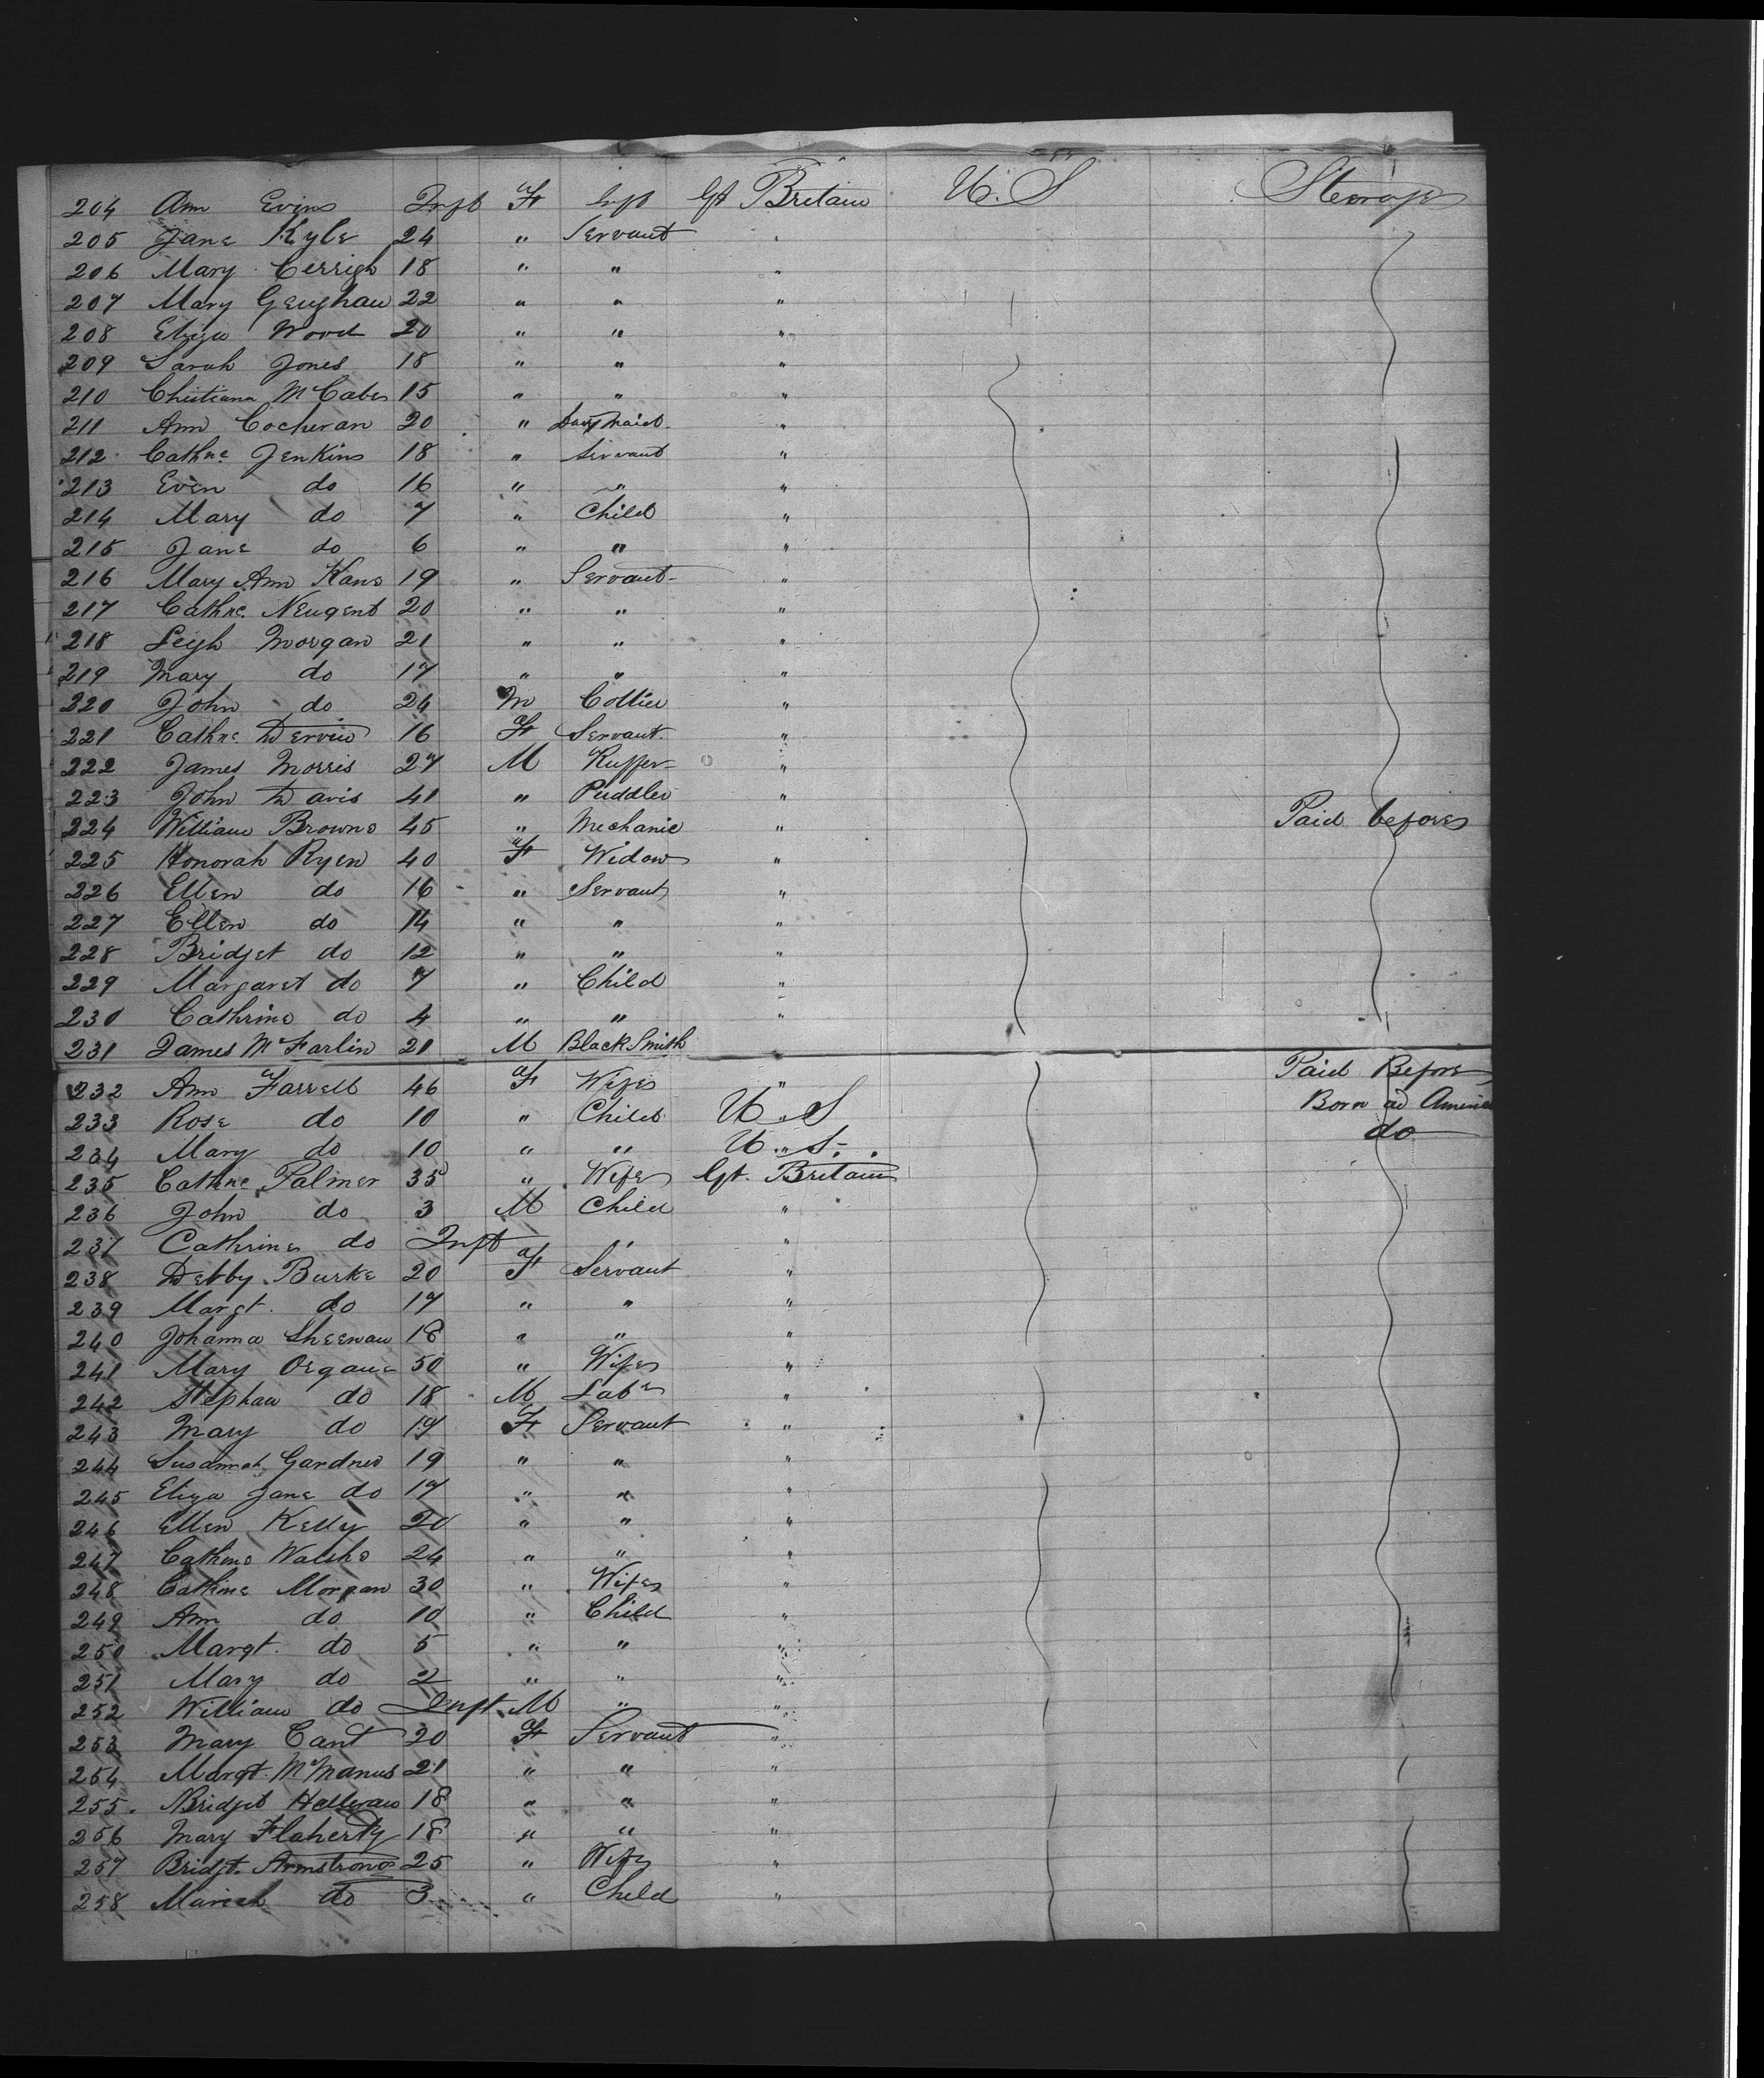 204 Ann Evins Inft F Inft Gt Britain U.S Steerage
205 Jane Kyle 24 " Servant "
206 Mary Cerrigh 18 " " "
207 Mary Geughan 22 " " "
208 Eliza Wood 20 " " "
209 Sarah Jones 18 " " "
210 Chistiana McCabe 15 " " "
211 Ann Cocheran 20 " Dairy Maid "
212 Cathne Jenkins 18 " Servant "
213 Even do 16 " " "
214 Mary do 7 " Child "
215 Jane do 6 " " "
216 Mary Ann Kane 19 " Servant "
217 Cathne Neugent 20 " " "
218 Leigh Morgan 21 " " "
219 Mary do 17 " " "
220 John do 24 M Collier "
221 Cathne Dervin 16 F Servant "
222 James Morris 27 M "
223 John Davis 41 " Puddler "
224 William Browne 45 " Mechanic " Paid before
225 Honorah Ryen 40 F Widow "
226 Ellen do 16 " Servant "
227 Ellen do 14 " " "
228 Bridget do 12 " " "
229 Margaret do 7 " Child "
230 Cathrine do 4 " " "
231 James McFarlin 21 M BlackSmith
232 Ann Farrell 46 F Wife " Paid Before
233 Rose do 10 " Child U.S Born in America
234 Mary do 10 " " U.S. do
235 Cathne Palmer 35 " Wife Gt. Britain
236 John do 3 M Child "
237 Cathrine do Inft " "
238 Debby Burke 20 F Servant "
239 Margt. do 17 " " "
240 Johanna Sheenan 18 " " "
241 Mary Oegane 50 " Wife "
242 Stephan do 18 M Labr "
243 Mary do 19 F Servant "
244 Susannah Gardner 19 " " "
245 Eliza Jane do 17 " " "
246 Ellen Kelly 20 " " "
247 Cathine Walshe 24 " " "
248 Cathine Morgan 30 " Wife "
249 Ann do 10 " Child "
250 Margt. do 5 " " "
251 Mary do 2 " " "
252 William do Inft M " "
253 Mary Cant 20 F Servant "
254 Margt. McManus 21 " " "
255 Bridget Halleran 18 " " "
256 Mary Flaherty 18 " " "
257 Bridgt. Armstrong 25 " Wife "
258 Mariah do 3 " Child "